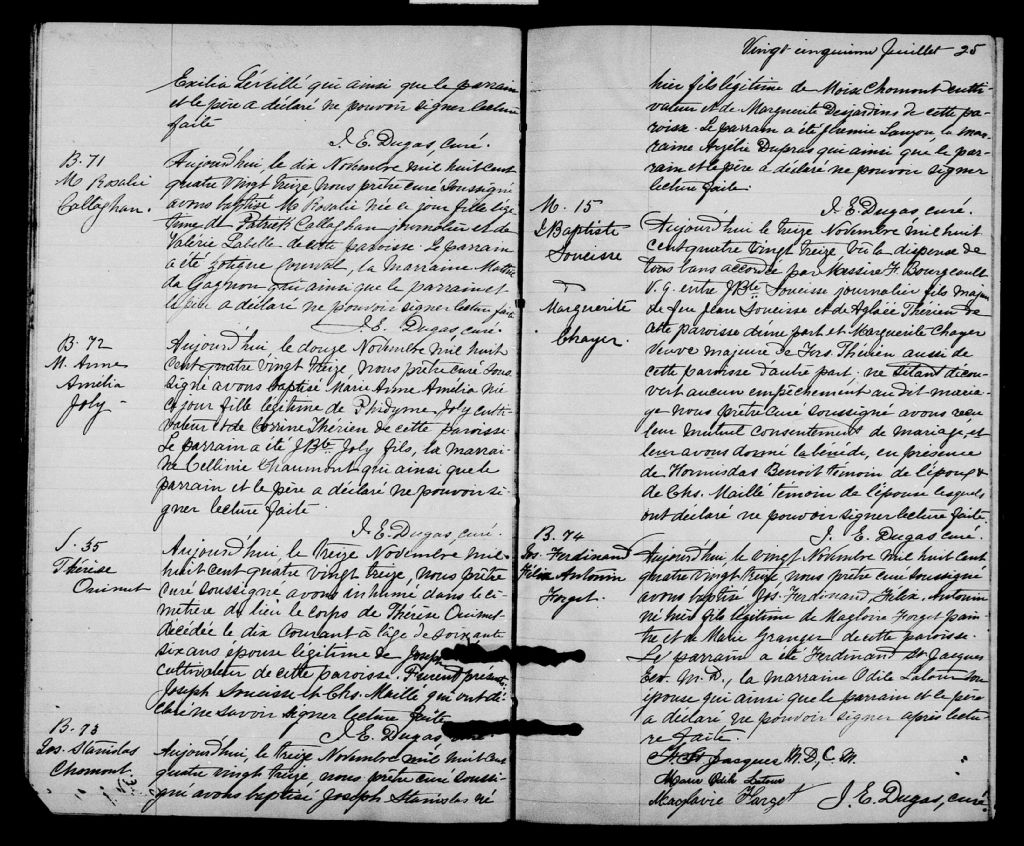 Exilia Léveillé qui ainsi que le parrain
et le père a déclaré ne pouvoir signer lecture
faite
J. E. Dugas, curé.
B. 71
M Rosalie
Callaghan.
Aujourd'hui, le dix Novembre mil huit cent
quatre vingt treize nous prêtre curé soussigné
avons baptisé M Rosalie née ce jour fille légi
time de Patrick Callaghan journalier et de
Valérie Labelle de cette paroisse. Le parrain
a été Zotique Courval, la marraine
Gagnon qui ainsi que le parrain et
le père a déclaré ne pouvoir signer lecture faite
J. E. Dugas curé.
B. 72
M. Anne
Amélia
Joly
Aujourd'hui, le douze Novembre mil huit
cent quatre vingt treize, nous prêtre curé sous
signé avons baptisé Marie Anne Amélia née
ce jour fille légitime de Phidyme Joly culti
vateur et de Corine Therien de cette paroisse
Le parrain a été J Bte Joly fils, la marrai
ne Celinie Chaumont qui ainsi que le
parrain et le père a déclaré ne pouvoir si-
gner lecture faite.
J. E. Dugas, curé.
S. 35
Thérèse
Ouimet
Aujourd'hui, le treize Novembre mil
huit cent quatre vingt treize, nous prêtre
curé soussigné avons inhumé dans le ci-
metière du lieu le corps de Thérèse Ouimet
décédée le dix courant à l'âge de soixante
six ans épouse légitime de Joseph
cultivateur de cette paroisse. Furent présents
Joseph Soucisse et Chs. Maillé qui ont dé-
claré ne savoir signer lecture faite
J. E. Dugas, curé.
B. 73
Jos. Stanislas
Chomont.
Aujourd'hui, le treize Novembre mil huit cent
quatre vingt treize, nous prêtre curé soussi-
gné avons baptisé Joseph Stanislas né
Vingt cinquième feuillet 25
hier fils légitime de Moïse Chomont culti
vateur et de Marguerite Desjardins de cette pa-
roisse. Le parrain a été Jérémie Lauzon la mar-
raine Azélie Dupras qui ainsi que le par-
rain et le père a déclaré ne pouvoir signer
lecture faite.
J. E. Dugas, curé.
M. 15
J Baptiste
Soucisse
Marguerite
Chayer.
Aujourd'hui le treize Novembre mil huit
cent quatre vingt treize vu la dispense de
tous bans accordée par Messire F. Bourgeault
V. G. entre J Bte Soucisse journalier fils majeur
de feu Jean Soucisse et de Aglaée Therien de
cette paroisse d'une part et Marguerite Chayer
veuve majeure de Frs Thérien aussi de
cette paroisse d'autre part: ne s'étant décou-
vert aucun empêchement au dit maria-
ge nous prêtre curé soussigné avons reçu
leur mutuel consentement de mariage, et
leur avons donné la bénéd, en présence
de Hormisdas Benoit témoin de l'époux &
de Chs. Maillé témoin de l'épouse lesquels
ont déclaré ne pouvoir signer lecture faite.
J. E. Dugas curé.
B. 74
Jos. Ferdinand
Félix Antonin
Forget.
Aujourd'hui, le vingt Novembre mil huit cent
quatre vingt treize, nous prêtre curé soussigné
avons baptisé Jos. Ferdinand, Félix, Antonin
né hier fils légitime de Magloire Forget pein-
tre et de Marie Granger de cette paroisse.
Le parrain a été Ferdinand St Jacques
Ecr. M. D., la marraine Odile Latour son
épouse qui ainsi que le parrain et le père
a déclaré ne pouvoir signer après lectu-
re faite.
F. St Jacques M.D,C.M.
Marie Odile Latour
Forget
J. E. Dugas, curé.